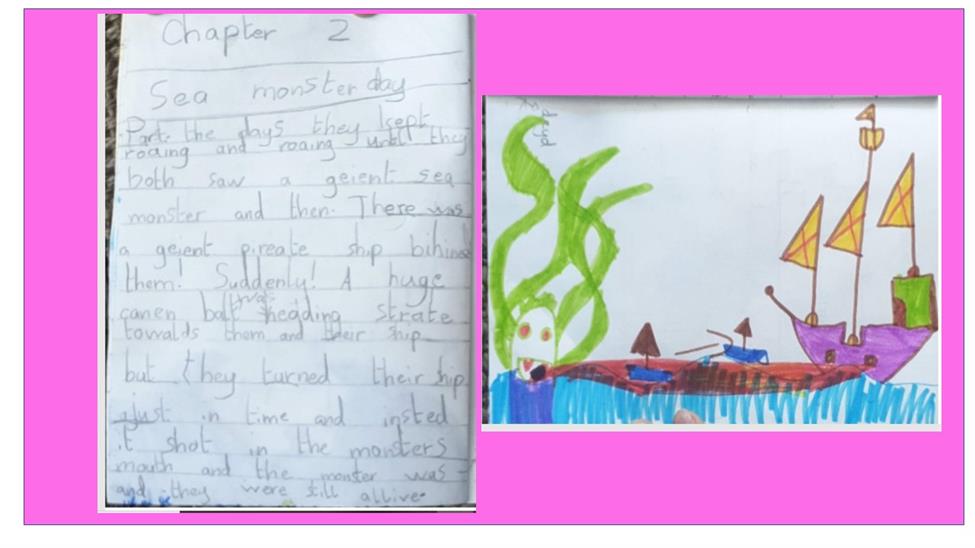 Chapter 2
Sea monster day
Part. the days they kept
roaing and roaing until they
both saw a geient sea
monster and then. There was
a geient pireate ship bihined
them! Suddenly! A huge
canen ball was heading strate
towalds them and their ship
but they turned their ship
ajust in time and insted
it shot in the monsters
mouth and the monster was
and they were still allive.